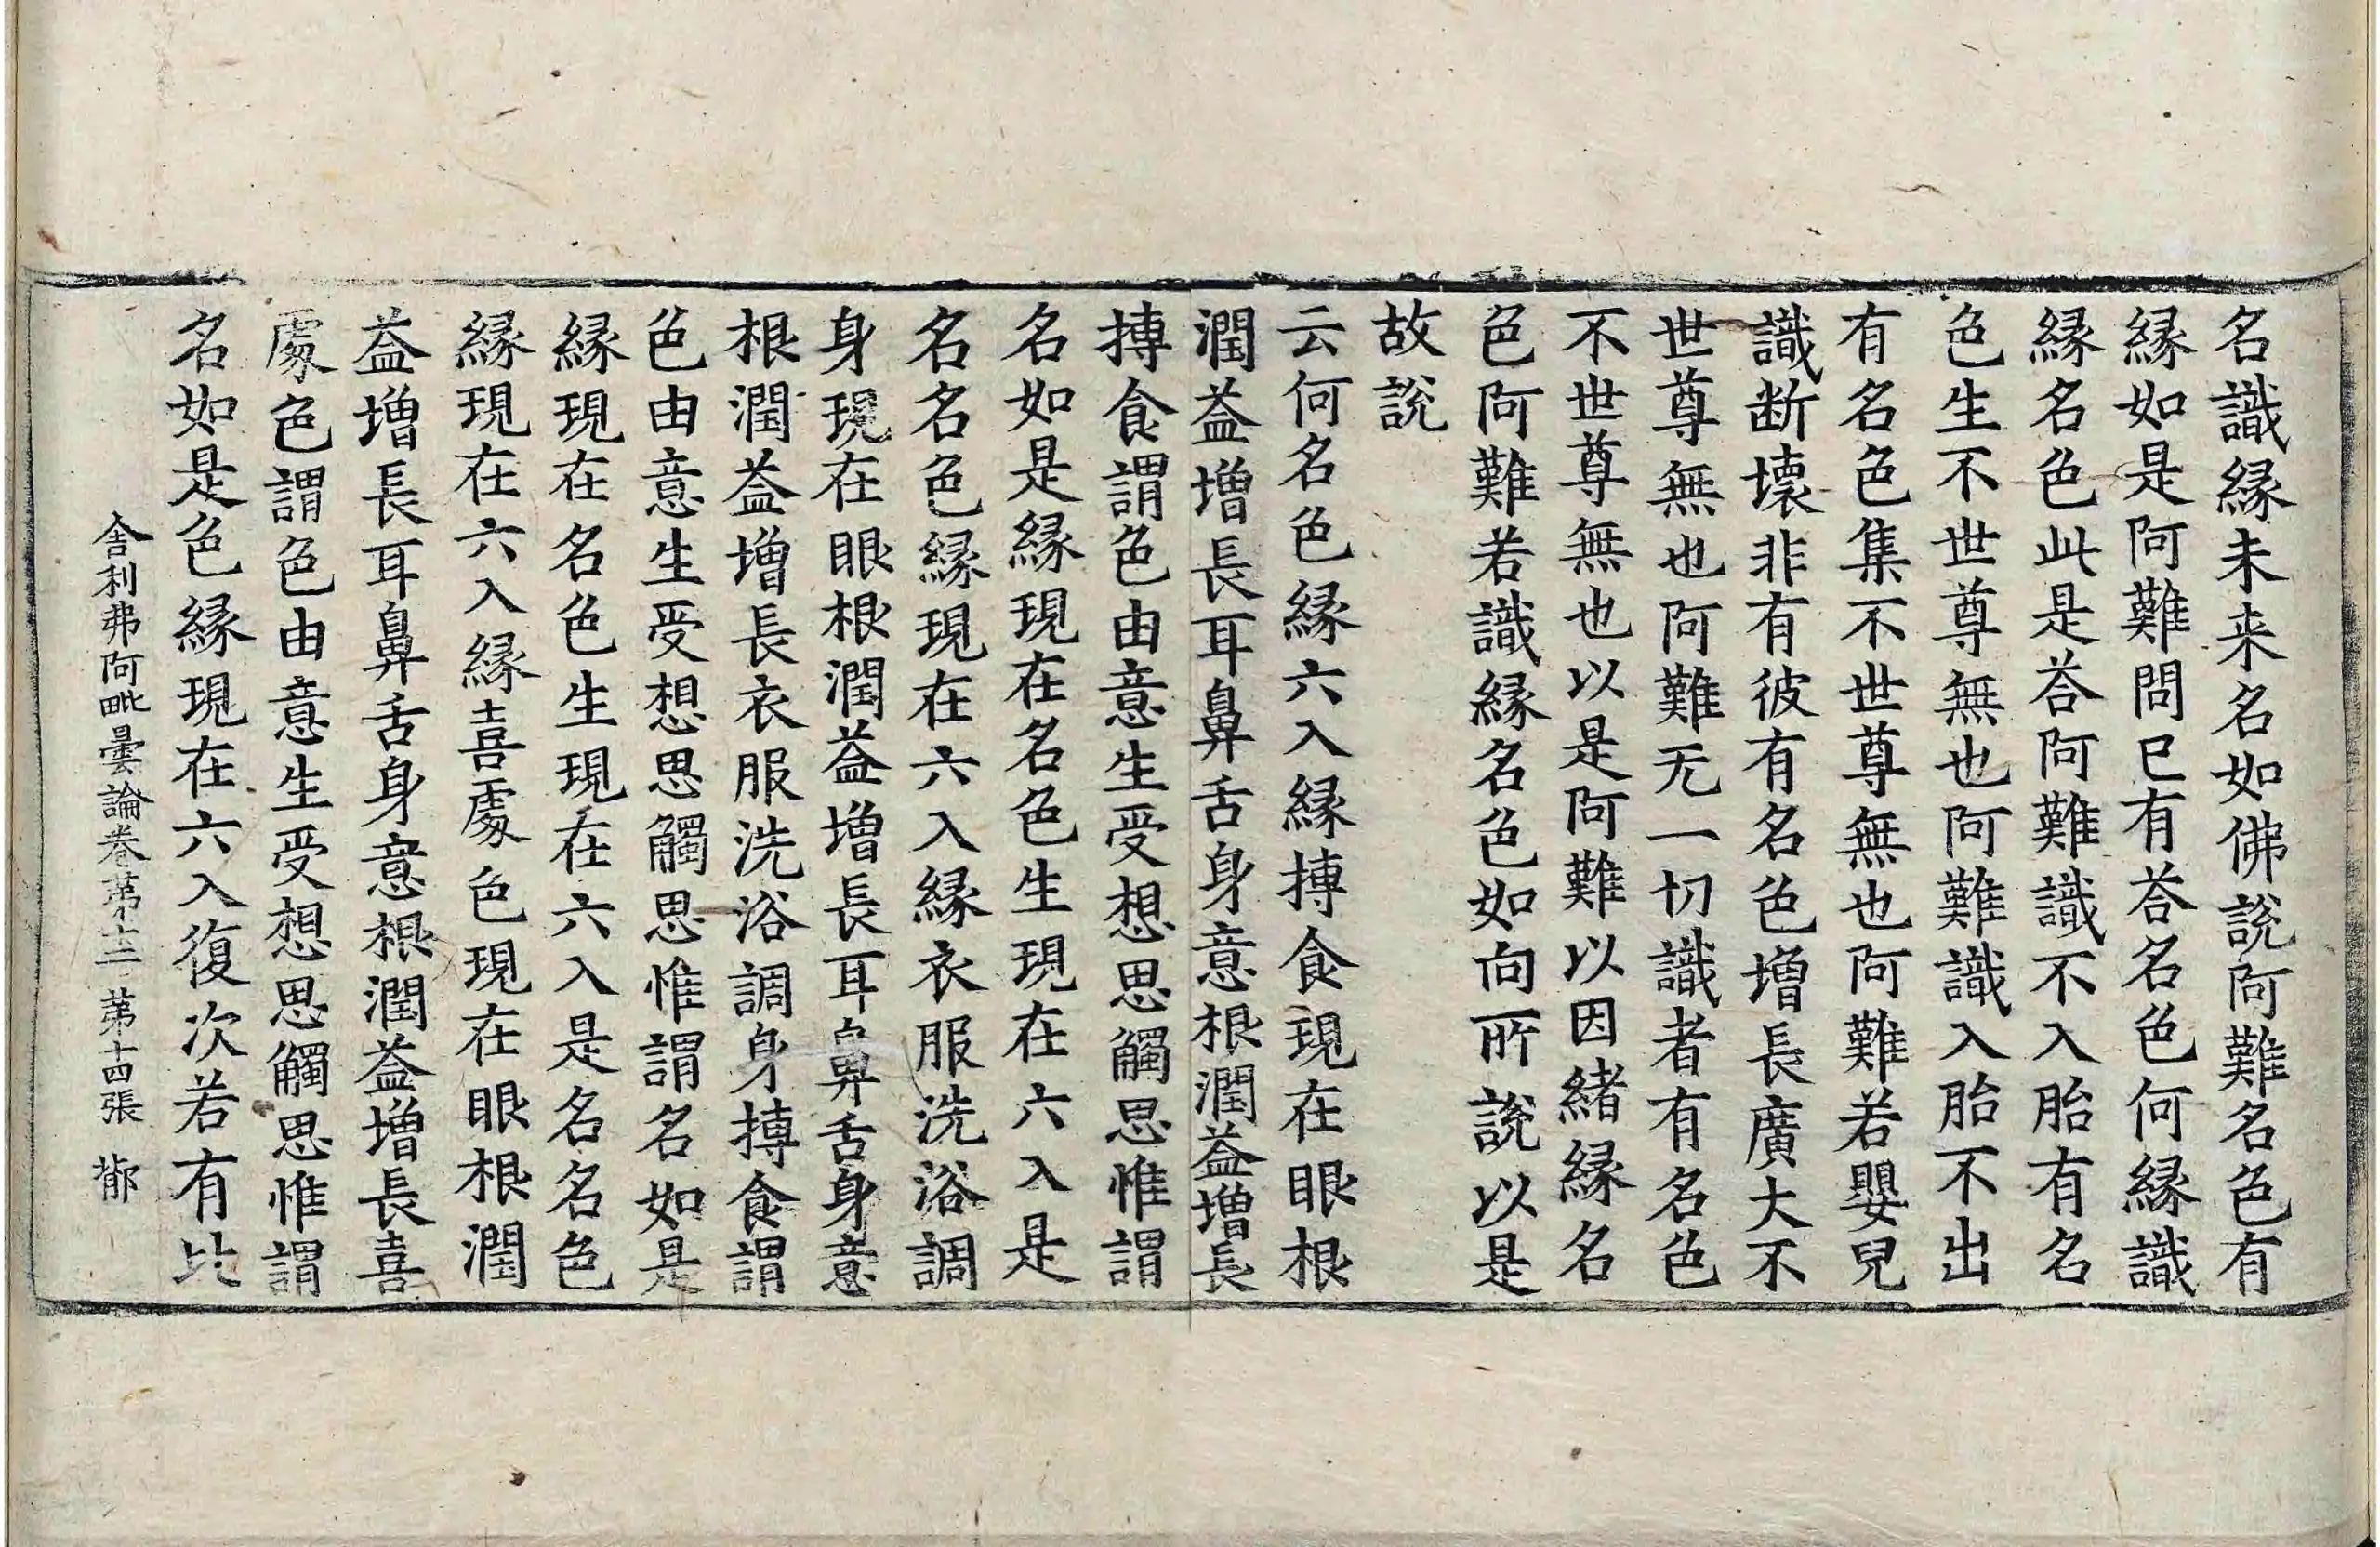 名識縁未来名如佛說阿難名色有
縁如是阿難問已有荅名色何縁識
縁名色此是荅阿難識不入胎有名
色生不世尊無也阿難識入胎不出
有名色集不世尊無也阿難若嬰兒
識断壞非有彼有名色增長廣大不
世尊無也阿難无一切識者有名色
不世尊無也以是阿難以因緒縁名
色阿難若識縁名色如向所說以是
故說
云何名色縁六入縁摶食現在眼根
潤益增長耳鼻舌身意根潤益增長
摶食謂色由意生受想思觸思惟謂
名如是縁現在名色生現在六入是
名名色縁現在六入縁衣服洗浴調
身現在眼根潤益增長耳鼻舌身意
根潤益增長衣服洗浴調身摶食謂
色由意生受想思觸思惟謂名如是
縁現在名色生現在六入是名名色
縁現在六入縁喜處色現在眼根潤
益增長耳鼻舌身意根潤益增長喜
處色謂色由意生受想思觸思惟謂
名如是色縁現在六入復次若有比
舎利弗阿毗曇論卷第十二 第十四張